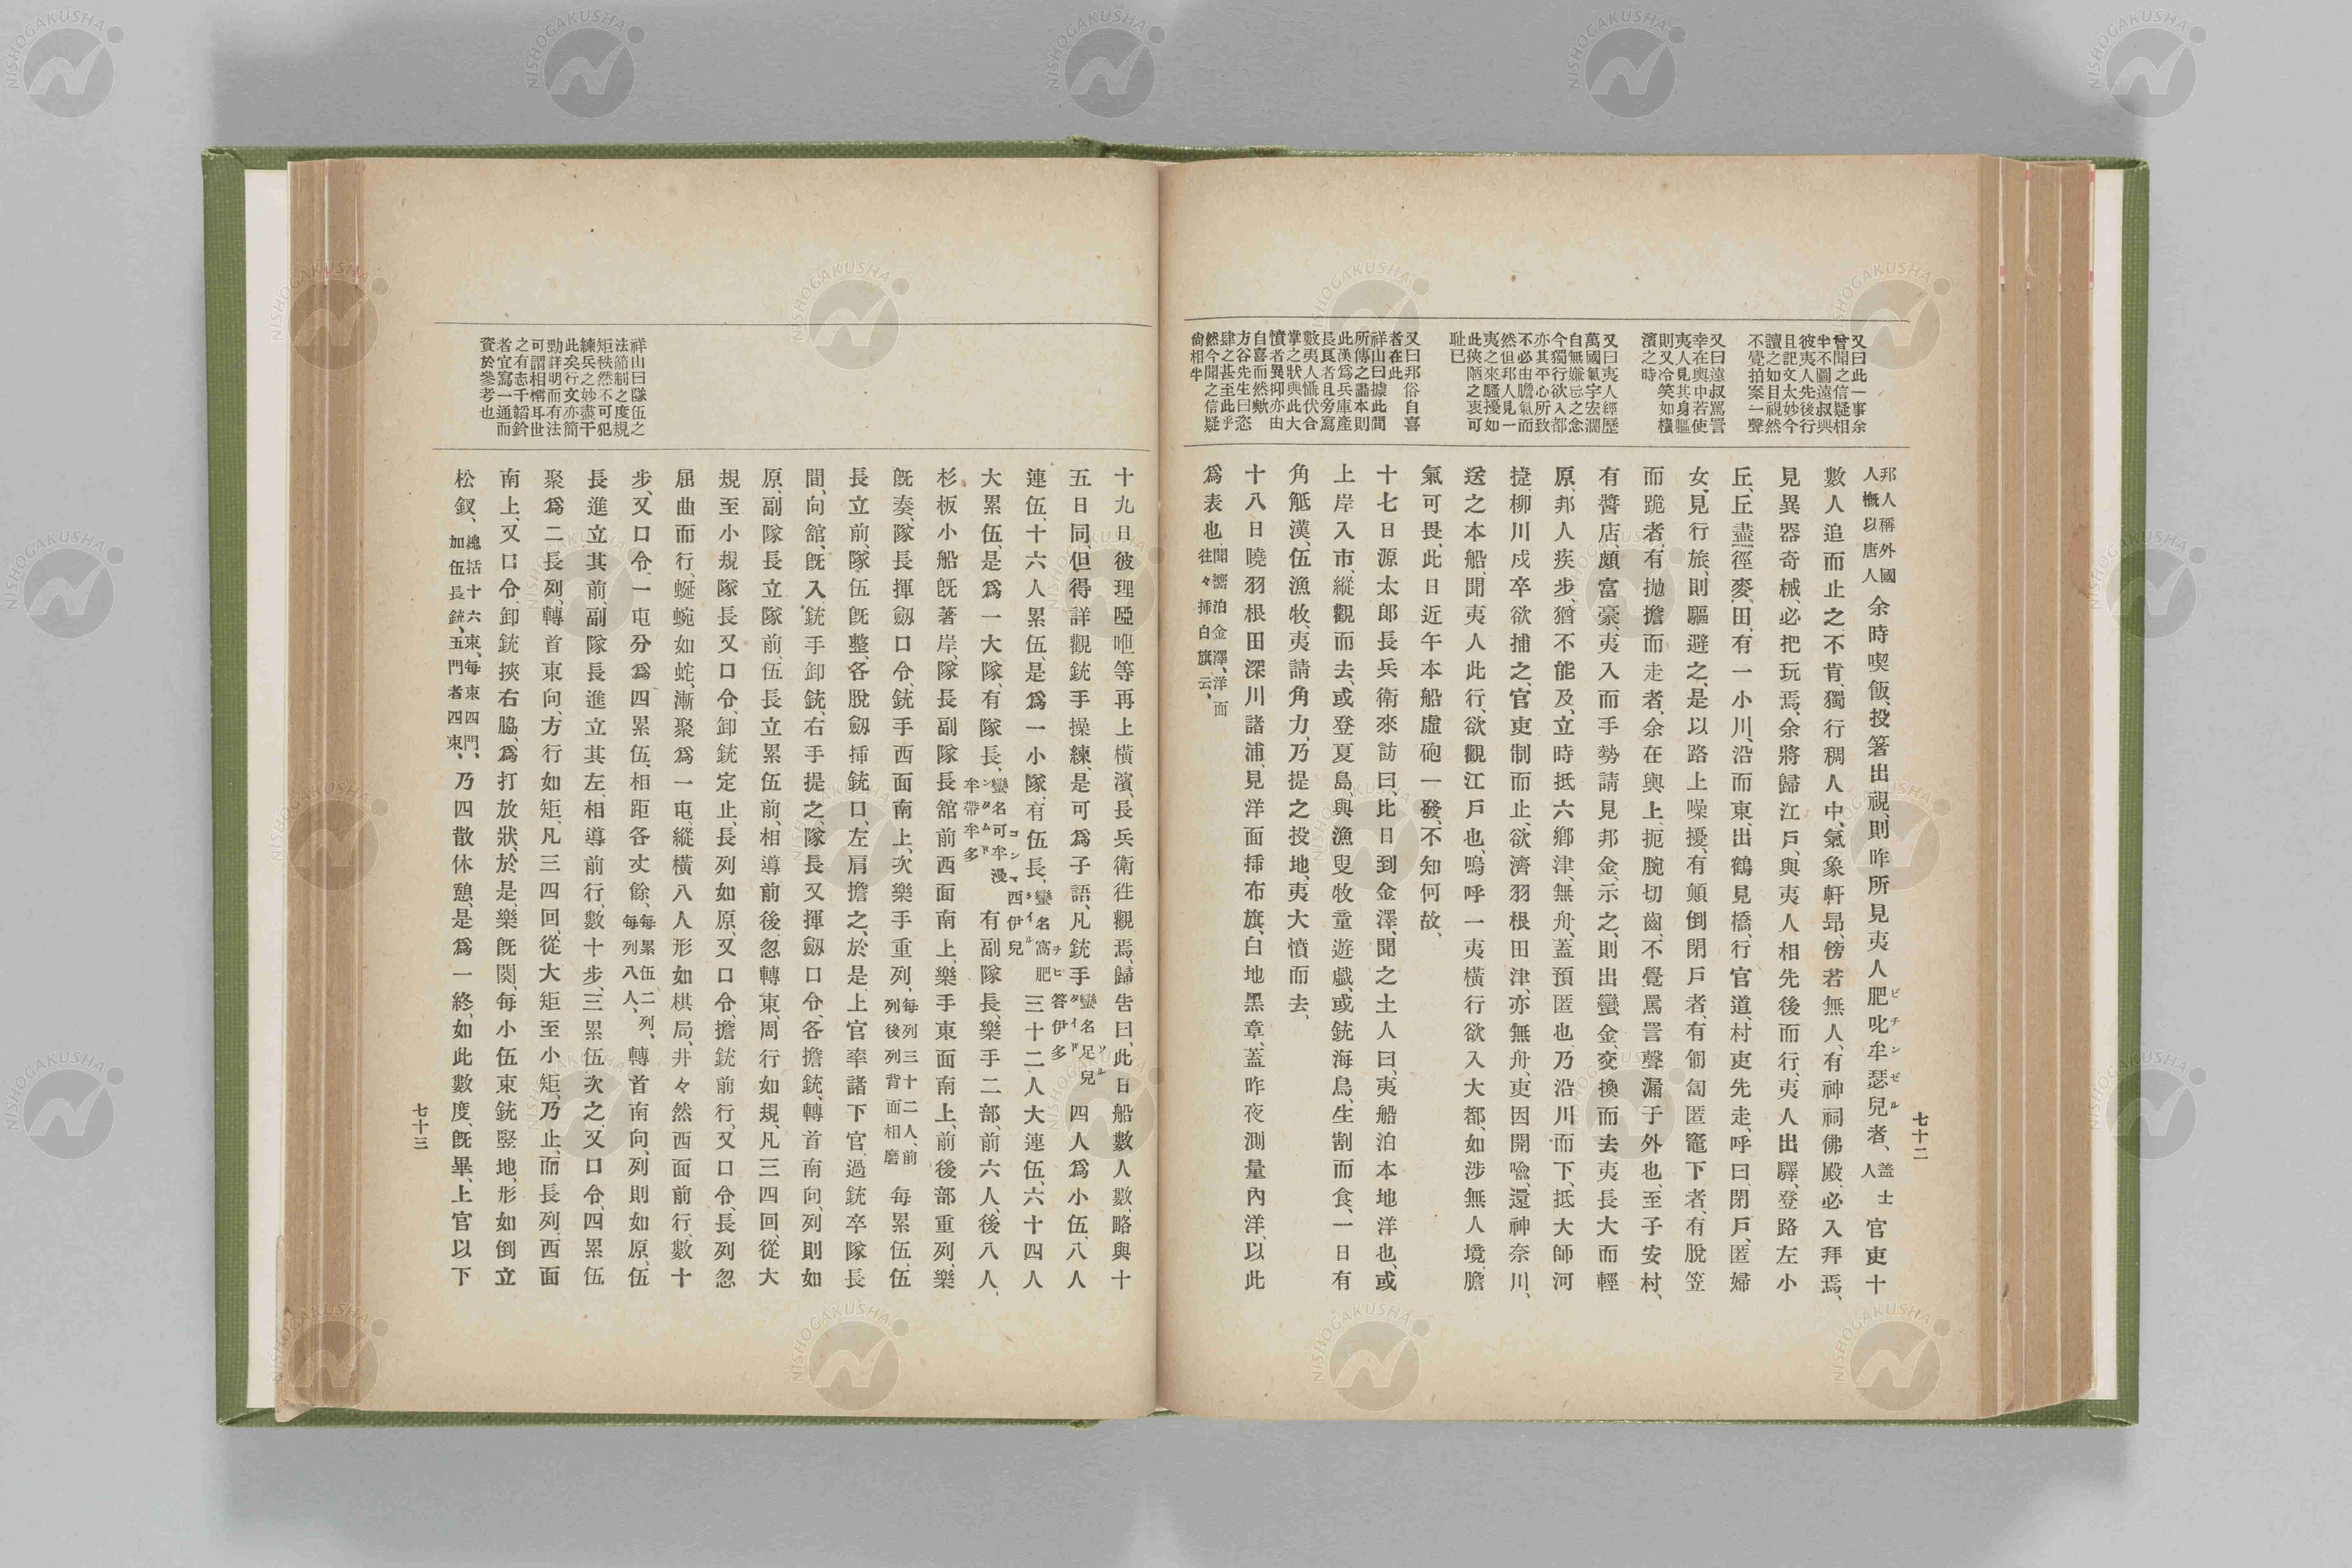 又曰此一事余
曾聞之信疑相
半不圖遠叔與
彼夷人先後行
且記文太妙今
讀之如目視然
不覺拍案一聲
又曰遠叔罵詈
幸在輿中若使
夷人見其身軀
則又冷笑如橫
濱之時
又曰夷人經歷
萬國氣宇宏濶
自無嫌忌之念
今獨行欲入都
亦其平心所致
不必由膽氣而
然但邦人見一
夷之來騷擾如
此狹陋之衷可
耻已
又曰邦俗自喜
者在此
祥山曰據此間
所傳之畵本則
此漢爲兵庫產
長艮者且旁寫
數夷人懾伏合
掌之狀與此大
憤者異抑亦由
自喜而然歟
方谷先生曰恣
肆之甚至此乎
然今聞之信疑
尙相半
邦人稱外國
人概以唐人
余時喫飯、投箸出視、則昨所見夷人肥叱牟瑟兒者、
ビチンゼル
盖士
人
官吏十
數人追而止之不肯、獨行稠人中、氣象軒昂、傍若無人、有神祠佛殿、必入拜焉、
見異器奇械、必把玩焉、余將歸江戶、與夷人相先後而行、夷人出驛、登路左小
丘、丘盡徑麥田、有一小川、沿而東、出鶴見橋、行官道、村吏先走、呼曰、閉戶、匿婦
女、見行旅、則驅避之、是以路上噪擾、有顛倒閉戶者、有匍匐匿竈下者、有脫笠
而跪者、有抛擔而走者、余在輿上、扼腕切齒、不覺罵詈聲漏于外也、至子安村、
有醬店、頗富豪、夷入而手勢請見邦金、示之、則出蠻金、交換而去、夷長大而輕
原、邦人疾步、猶不能及、立時抵六鄕津、無舟、蓋預匿也、乃沿川而下、抵大師河
捷、柳川戍卒欲捕之、官吏制而止、欲濟羽根田津、亦無舟、吏因開喩、還神奈川、
送之本船、聞夷人此行、欲觀江戶也、嗚呼一夷橫行欲入大都、如涉無人境、膽
氣可畏、此日近午本船虛砲一發、不知何故、
十七日源太郞長兵衛來訪曰、比日到金澤、聞之土人曰、夷船泊本地洋也、或
上岸入市、縱觀而去、或登夏島、與漁叟牧童遊戲、或銃海鳥、生割而食、一日有
角觝漢、伍漁牧、夷請角力、乃提之投地、夷大憤而去、
十八日曉羽根田深川諸浦、見洋面揷布旗、白地黑章、蓋昨夜測量內洋、以此
爲表也、
聞嚮泊金澤、洋面
往々揷白旗云、
七十二
祥山曰隊伍之
法節制之度規
矩秩然不可犯
練兵之妙盡于
此矣行文亦簡
勁詳明而有法
可謂相稱耳世
之有志于韜鈐
者宜寫一通而
資於參考也
十九日彼理啞咃等再上橫濱、長兵衛往觀焉、歸告曰、此日船數人數、略與十
五日同、但得詳觀銃手操練、是可爲子語、凡銃手
蠻名足兒
ソル
答伊多
タイド
四人爲小伍、八人
連伍、十六人累伍、是爲一小隊、有伍長、
蠻名窩肥
ヲヒ
西伊兒
シイル
三十二人大連伍、六十四人
大累伍、是爲一大隊、有隊長、
蠻名可牟漫
コンマ
牟帶牟多
ンダムド
有副隊長、樂手二部、前六人、後八人、
杉板小船旣著岸、隊長副隊長舘前西面南上、樂手東面南上、前後部重列、樂
旣奏、隊長揮劔口令、銃手西面南上、次樂手重列、
每列三十二人、前
列後列背面相磨
每累伍、伍
長立前、隊伍旣整、各脫劔揷銃口、左肩擔之、於是上官率諸下官、過銃卒隊長
間、向舘、旣入、銃手卸銃、右手提之、隊長又揮劔口令、各擔銃、轉首南向、列則如
原、副隊長立隊前、伍長立累伍前、相導前後忽轉東、周行如規、凡三四回、從大
規至小規隊長又口令、卸銃定止、長列如原、又口令、擔銃前行、又口令、長列忽
屈曲而行、蜒蜿如蛇、漸聚爲一屯、縱橫八人形如棋局、井々然西面前行、數十
步、又口令、一屯分爲四累伍、相距各丈餘、
每累伍二列、
每列八人、
轉首南向、列則如原、伍
長進立其前、副隊長進立其左、相導前行、數十步、三累伍次之、又口令、四累伍
聚爲二長列、轉首東向、方行如矩、凡三四回、從大矩至小矩、乃止、而長列、西面
南上、又口令卸銃挾右脇、爲打放狀、於是、樂旣闋、每小伍束銃竪地、形如倒立
松釵、
總括十六束、每束四門、
加伍長銃、五門者四束、
乃四散休憩、是爲一終、如此數度、旣畢、上官以下
七十三